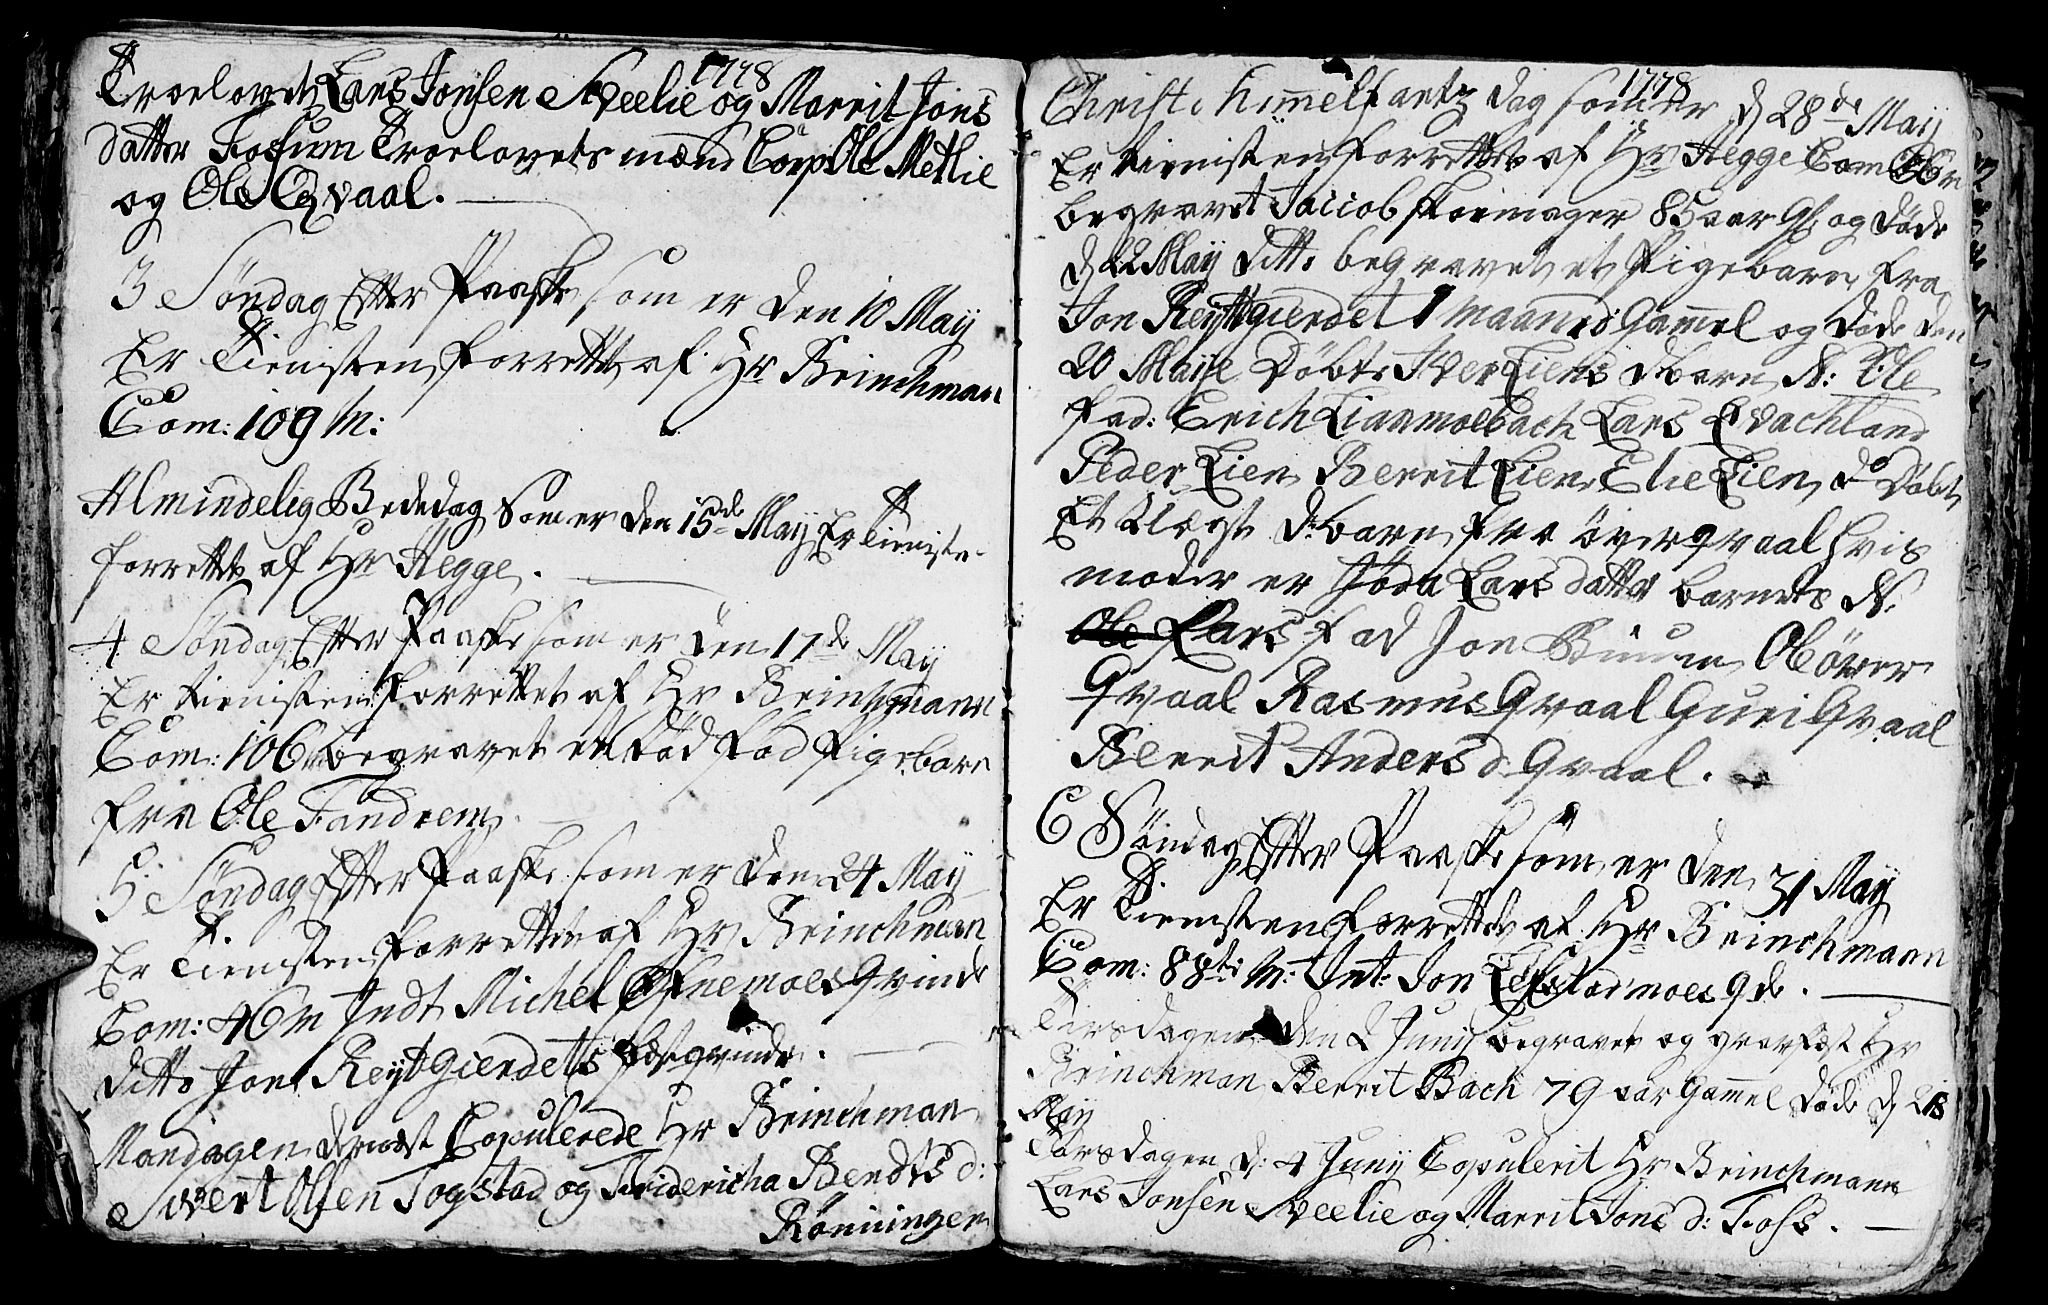 1778
Troelovet Lars Jonsen Sveelie og Marrit Jons
datter Fossum Troelovets mænd Corp Ole Metlie
og Ole Qvaal.
3 Søndag Efter Paaske som er den 10 May
Er Tienisten forrettet af Hr Brinchman
Com: 109 M:
Almindelig Bededag Som er den 15de May Er Tieniste
forrettet af Hr Hegge.
4 Søndag Efter Paaske som er den 17de May
Er tienisten forrettet af Hr Brinchmann
Com: 106 begravet et død fød Pigebarn
fra Ole Fandrem
5: Søndag Efter Paaske som er den 24 May
Er Tienisten forrettet af Hr Brinchman
Com: 46 m Indt Michel Ofnemoes Qvinde
ditto Jon Reytgierdets qvinde.
Mandagen dernæst Copulerede Hr Brinchman
Sivert Olsen Togstad og Fridericha Bendts d:
Rønningen
1778
Christi himmelfartz dag som er d 28de May
Er tienisten forrettet af Hr Hegge Com
begravet Jaccob Skoemager 85 aar gl og døde
d 22 May ditto begravet et Pigebarn fra
Jon Reytgierdet 1 maaned Gammel og døde den
20 Maye Døbt Iver Liens d barn N: Ole
fad: Erich Lianmoebach Lars Qvachland
Peder Lien Berrit Lien Elie Lien do Døbt
Et Uægte d: barn fra øver qvaal hvis
moder er Lars datter barnets N.
Ole Lars fad Jon Ole øver
Qvaal Rasmus Qvaal Guri Qvaal
Berrit Anders d: Qvaal.
6 Søndag Efter Paaske som er den 31 May
Er Tienisten forrettet af Hr Brinchmann
Com: 88ti M: Int: Jon Lefstadmoes Qde.
Tirsdagen den 2 Juny begravet og gravfæst Hr
Brinchman Berrit Bach 79 aar Gammel døde d
May
Torsdagen d: 4 Juny Copulerit Hr Brinchmann
Lars Jonsen Sveelie og Marrit Jons d: Foss.